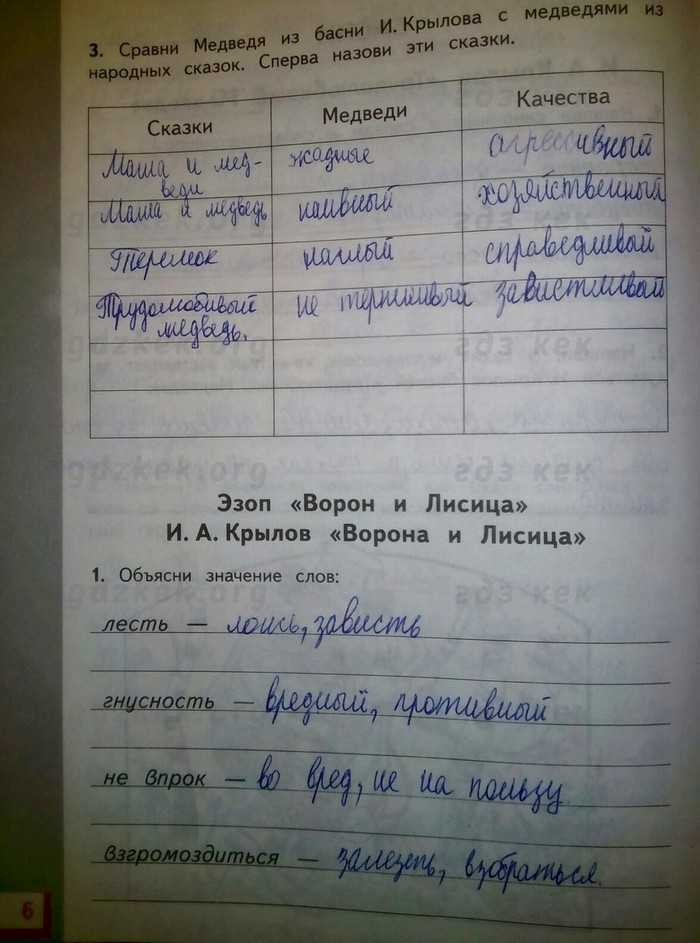 3. Сравни Медведя из басни И. Крылова с медведями из
народных сказок. Сперва назови эти сказки.
Сказки Медведи Качества
Маша и мед-
веди жадные агрессивный
Маша и медведь наивный хозяйственный
Теремок наглый справедливый
Трудолюбивый
медведь. не терпеливый завистливый
gdzkek.org гдз кек
gdzkek.org гдз кек
gdzkek.org гдз кек
Эзоп «Ворон и Лисица»
И. А. Крылов «Ворона и Лисица»
1. Объясни значение слов:
gdzkek.org гдз кек
лесть — ложь, зависть
гнусность — вредный, противный
не впрок — во вред, не на пользу
взгромоздиться — залезть, взобраться.
6